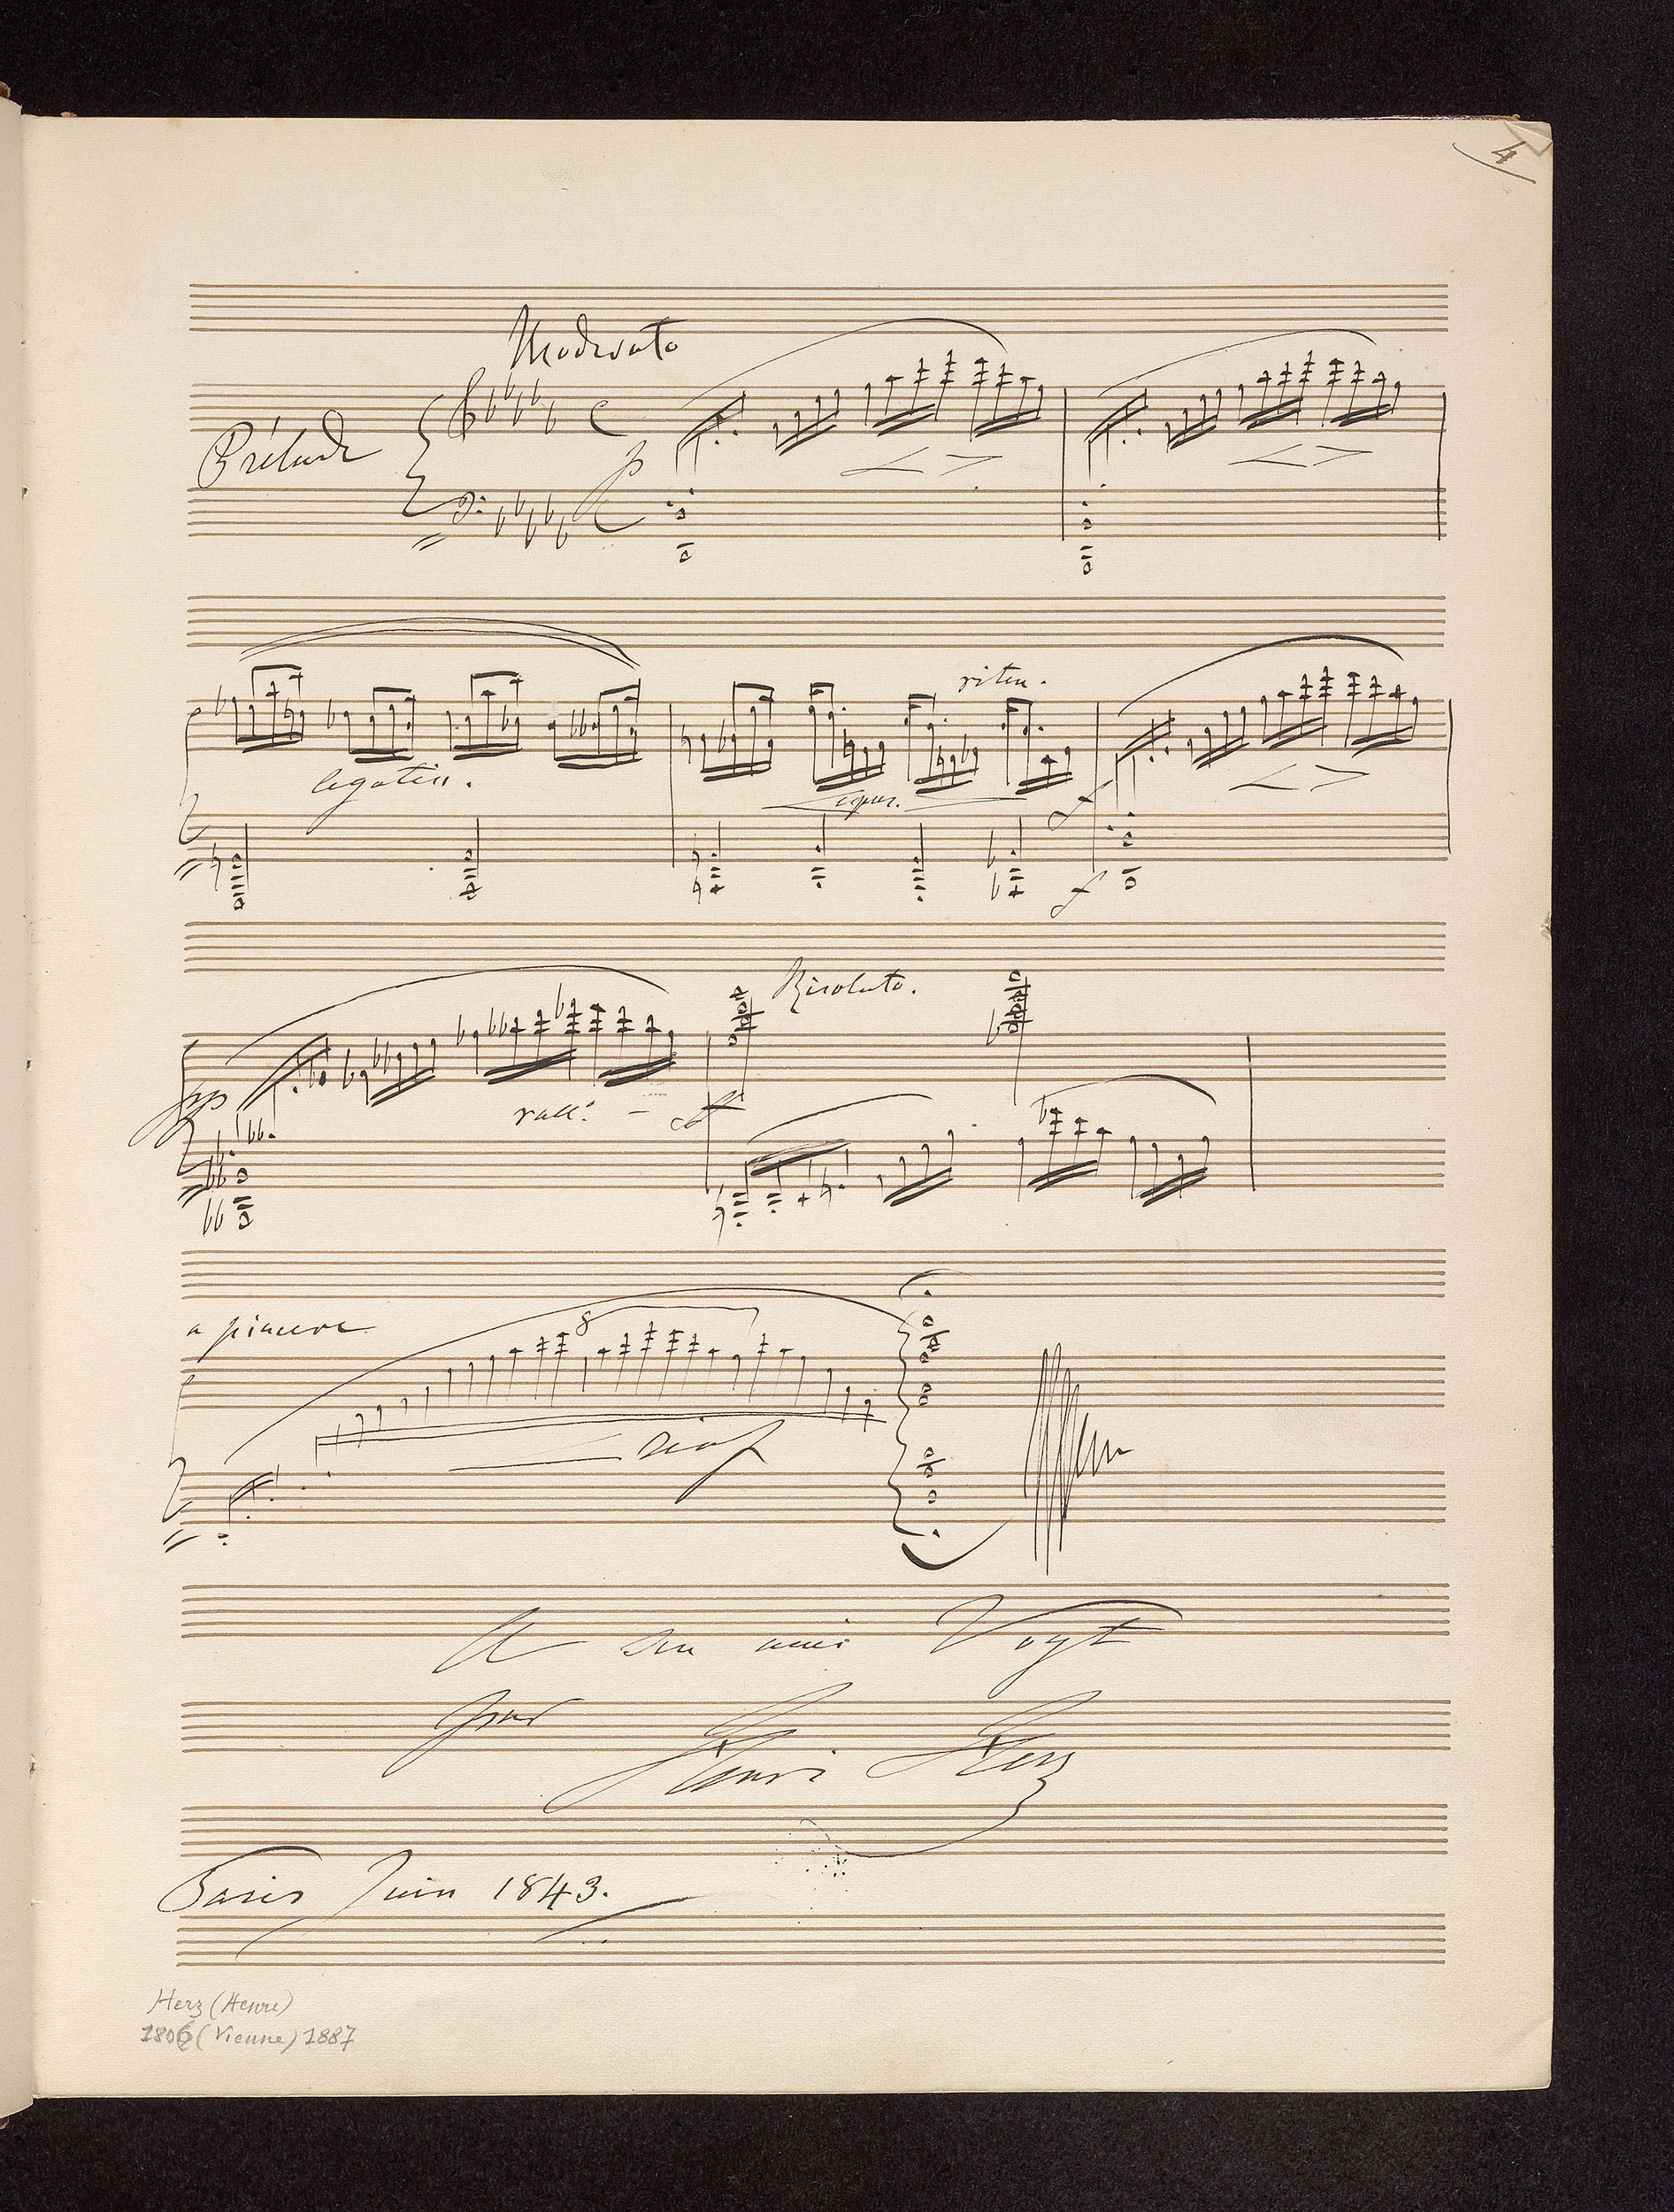 4
Moderato
Prélude
p
riten.
legatiss.
f
f
Risoluto.
pp
rall:
ff
a piacere
8
dim
A son ami Vogt
par Henri Herz
Paris Juin 1843.
Herz (Henri)
1806 (Vienne) 1887